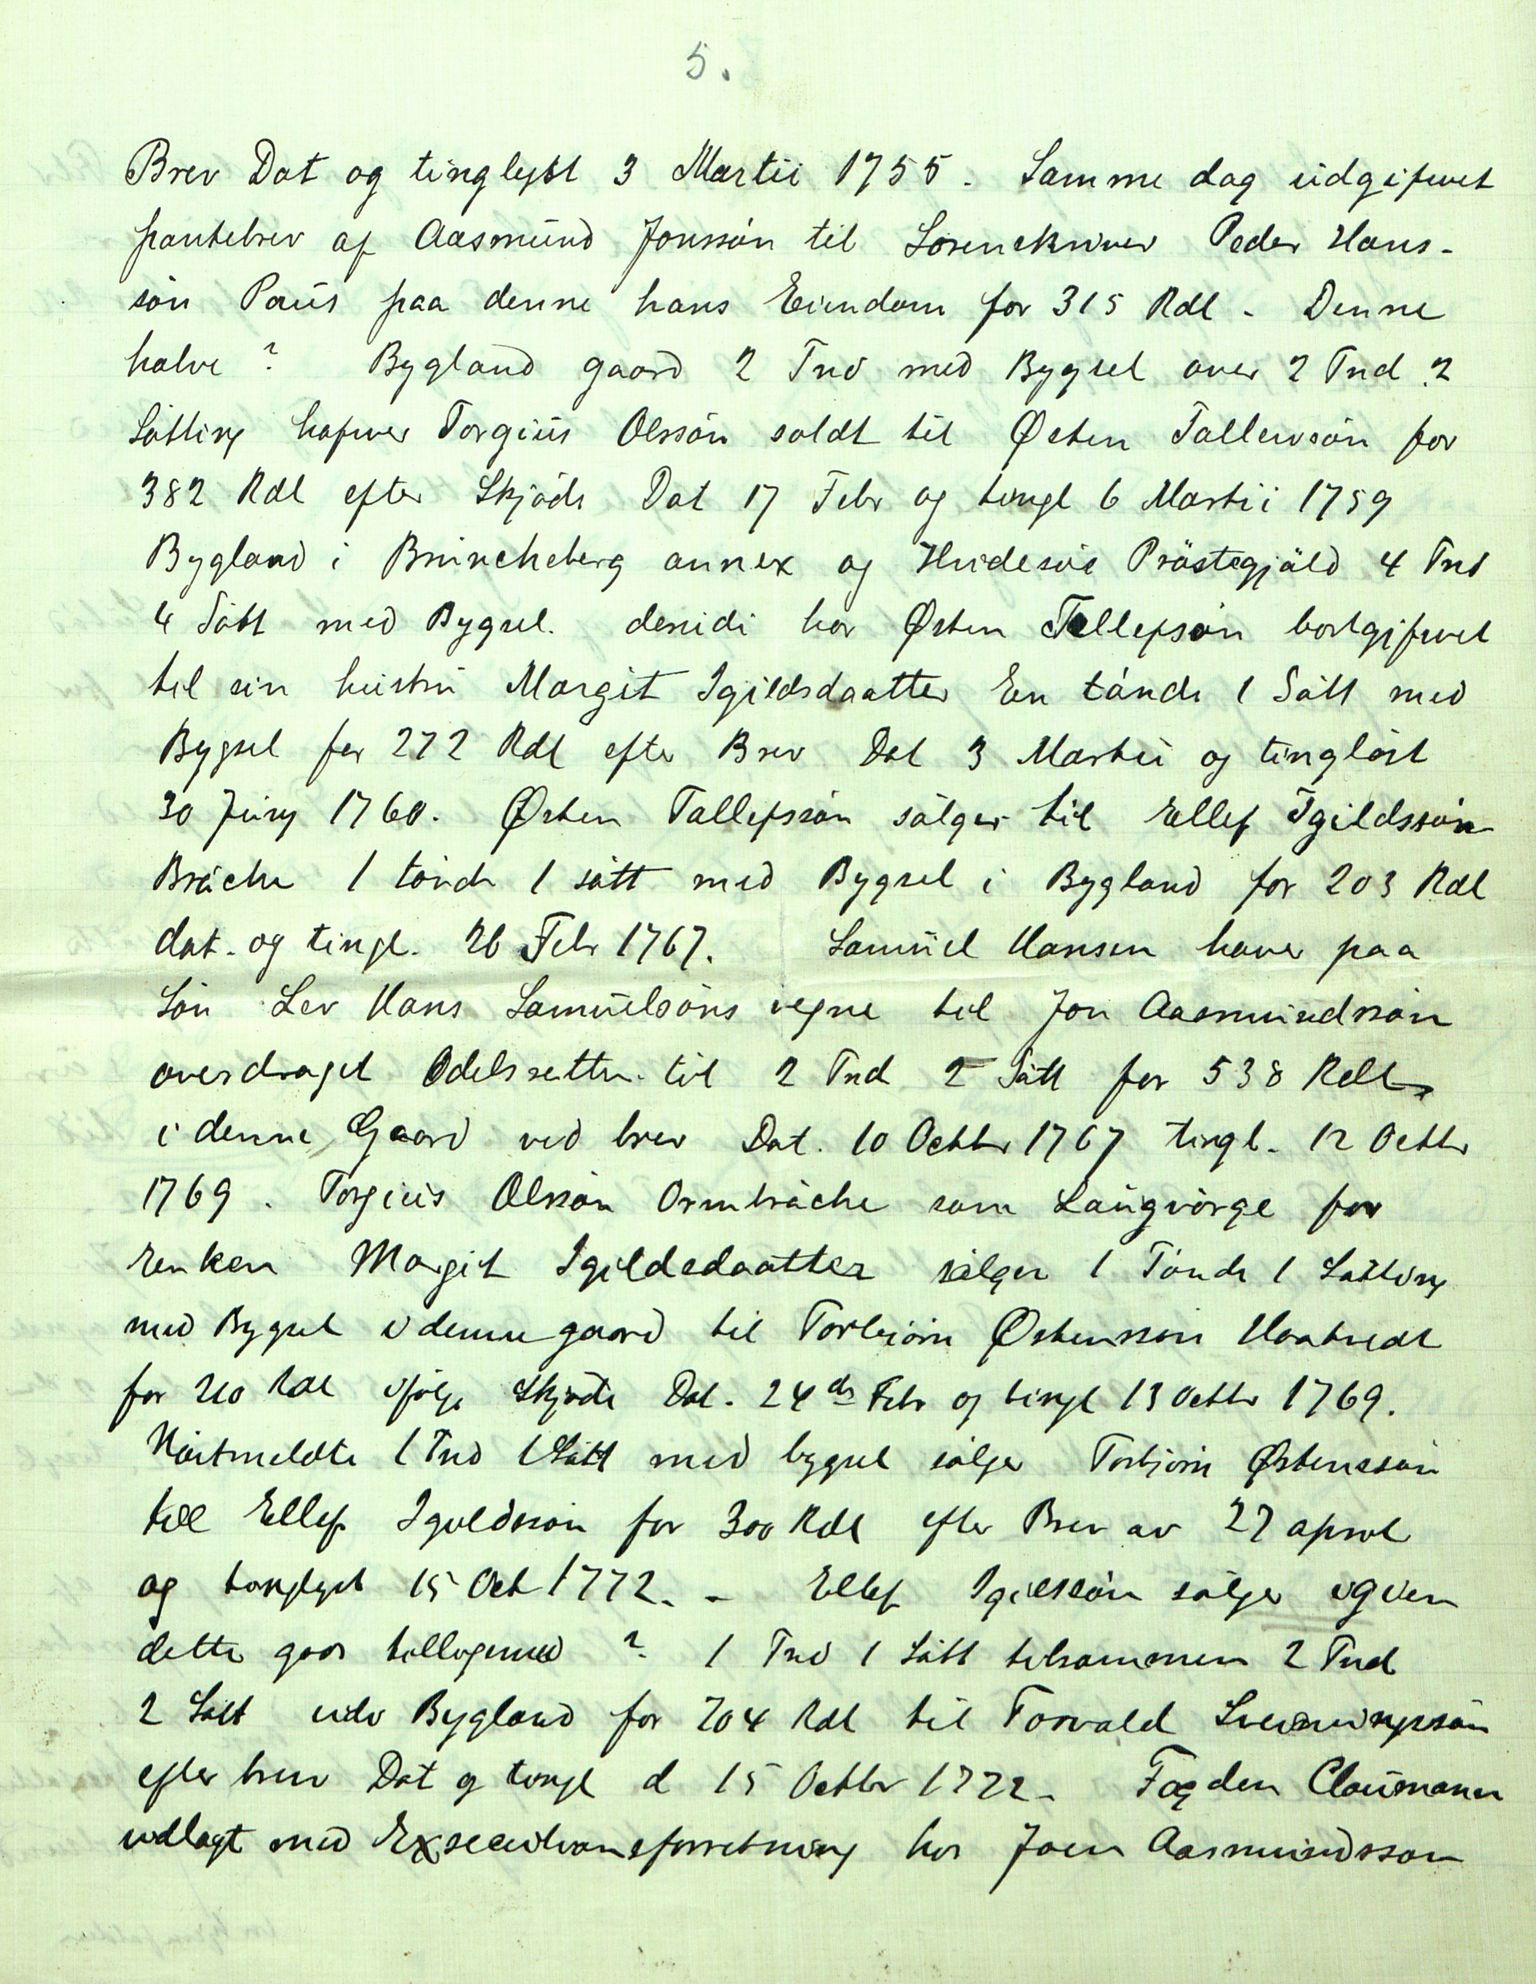 5.
Brev Dat og tinglyst 3 Martii 1755. Samme dag udgifvet
pantebrev af Aasmund Jonssøn til Sorenskriver Peder Hans-
søn Paus paa denne hans Eiendom for 315 Rdl. Denne
halve ? Bygland gaard 2 Tnd med Bygsel over 2 Tnd 2
Sætting hafver Torgius Olssøn soldt til Østen Tallevsøn for
382 Rdl efter Skjøde Dat 17 Febr og tingl 6 Martii 1759
Bygland i Bruncheberg annex og Hvidesøe Præstegjæld 4 Tnd
4 Sætt med Bygsel. har Østen Tellefsøn bortgifvet
til sin hustru Margit Igildsdaatter Een tønde 1 Sætt med
Bygsel for 272 Rdl efter Brev Dat 3 Martii og tingløst
30 Juny 1760. Østen Tallefssøn sælger til Ellef Igildssøn
Bræche 1 tønde 1 sætt med Bygsel i Bygland for 203 Rdl
dat. og tingl. 26 Febr 1767. Samuel Hansen haver paa
Søn Lev Hans Samuelsøns vegne til Jon Aasmundssøn
overdraget Odelsretten til 2 Tnd 2 Sætt for 538 Rdl
i denne Gaard ved brev Dat. 10 Octbr 1767 tingl. 12 Octbr
1769. Torgius Olssøn Ormbræche som Laugværge for
Enken Margit Igildsdaatter sælger 1 Tønde 1 Sætting
med Bygsel i denne gaard til Torbiørn Østenssøn Haatvedt
for 210 Rdl ifølge Skjøde Dat. 24de Febr og tingl 13 Octbr 1769.
Næstmeldte 1 Tnd 1 Sætt med bygsel sælger Torbjørn Østenssøn
till Ellef Igildssøn for 300 Rdl efter Brev av 27 april
og tinglyst 15 Oct 1772. - Ellef Igilssøn sælger igien
dette gods tilligemed ? 1 Tnd 1 Sætt tilsammen 2 Tnd
2 Sætt udi Bygland for 704 Rdl til Torvald Sveinungssøn
efter brev Dat og tingl d 15 Octbr 1772. Fogden Claumann
udlagt med Exsecutionsforretning hos Joen Aasmundssøn